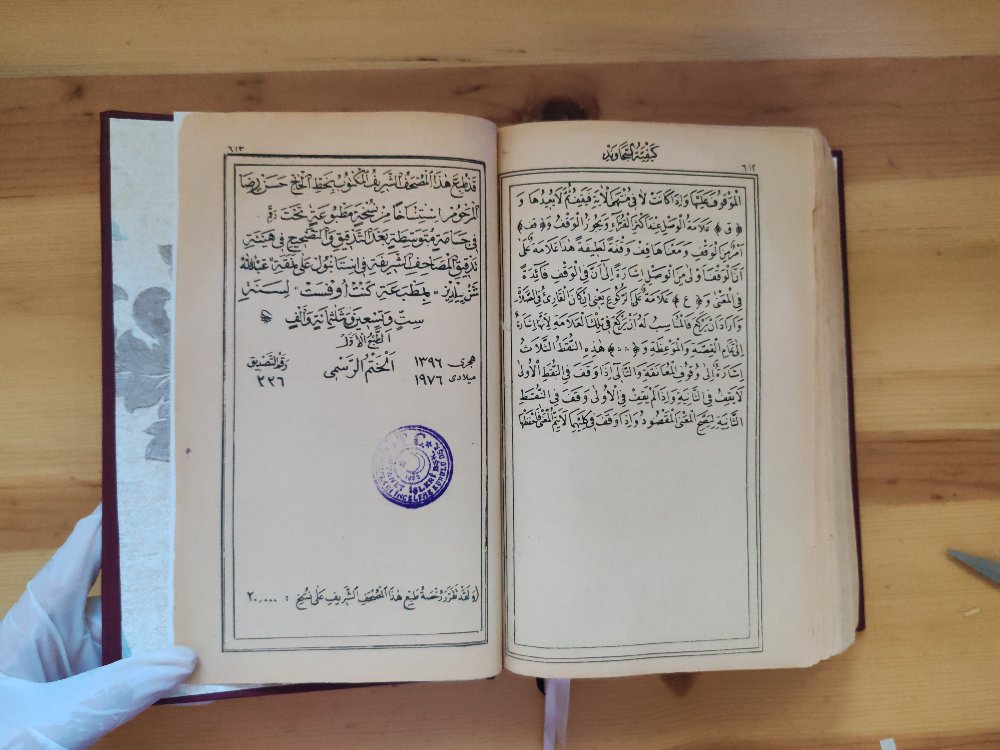 كيفية السجاوند
٦١٢
الموقوف عليها واذا كانت لا في منتهى الاية فيقف ثم لا يعيدها و
﴿ ق ﴾ علامة الوصل عند اكثر القراء ويجوز الوقف و ﴿ قف ﴾
امر من الوقف ومعناها قف وقفة لطيفة هذا علامة على
ان الوقف اولى من الوصل اشارة الى ان في الوقف فائدة
في المعنى و ﴿ ع ﴾ علامة على الركوع يعنى ان كان القارئ في الصلاة
واراد ان يركع فالمناسب له ان يركع في تلك العلامة لانها اشارة
الى تمام القصة والموعظة و ﴿ ∴ ∴ ﴾ هذه النقط الثلاث
اشارة الى وقوف المعانقة والتالى اذا وقف في النقط الاولى
لا يقف في الثانية واذا لم يقف في الاولى وقف في النقط
الثانية ليفهم المعنى المقصود واذا وقف في كلتيهما لا يتم المعنى فاحفظها
٦١٣
قد طبع هذا المصحف الشريف المكتوب بخط الحاج حسن رضا
المرحوم استنساخا من نسخة مطبوعة تحت رقم
في جسامة متوسطة بعد التدقيق والتصحيح في هيئة
تدقيق المصاحف الشريفة في استانبول على نفقة "عبدالله
شن ييلديز" بمطبعة "كنت اوفست" لسنة
ست وتسعين وثلثمائة والف
الطبع الاول
هجرى ١٣٩٦ الختم الرسمى رقم التصديق
ميلادى ١٩٧٦ ٢٢٦
T. C.
İŞLERİ
(ولقد تقرر رخصة طبع هذا المصحف الشريف على نسخ : ٢٠٫٠٠٠